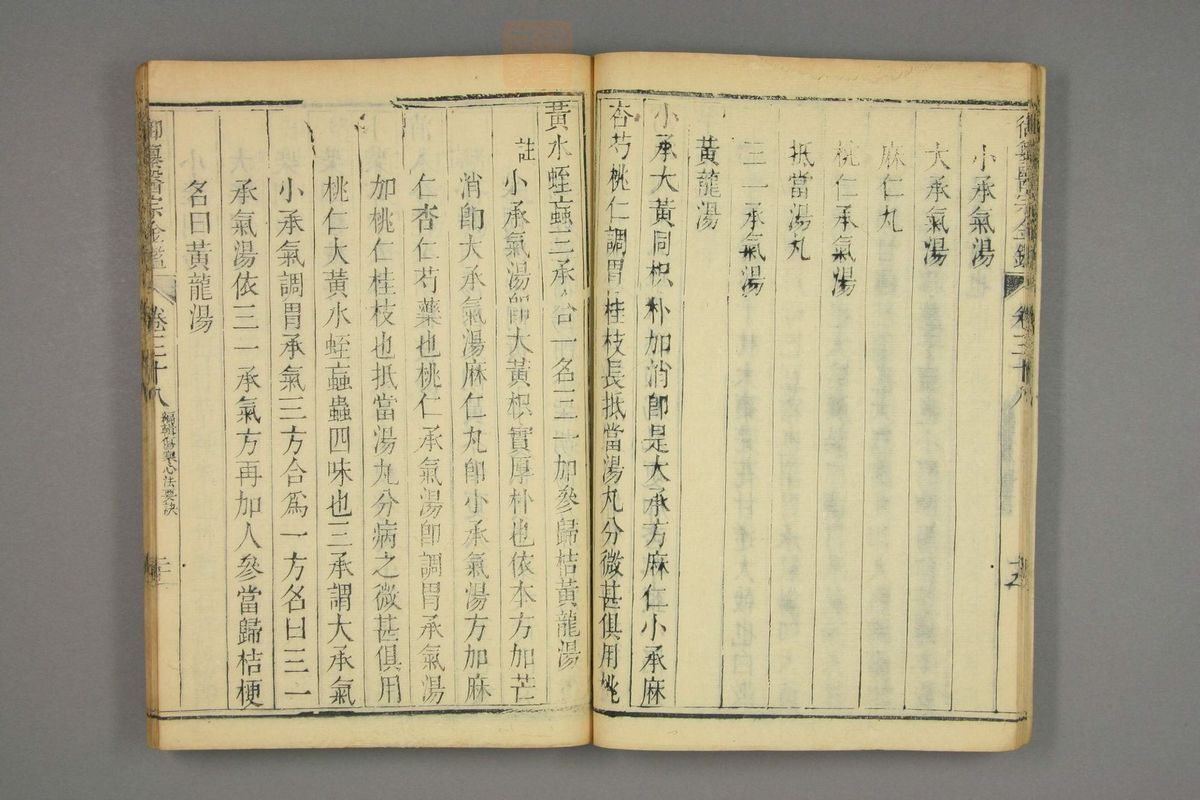 御纂醫宗金鑑 卷三十八
小承氣湯
大承氣湯
麻仁丸
桃仁承氣湯
抵當湯丸
三一承氣湯
黃龍湯
小承大黃同枳朴加消即是大承方麻仁小承麻
杏芍桃仁調胃桂枝長抵當湯丸分微甚俱用桃
黃水蛭蝱三承合一名三一加參歸桔黃龍湯
註小承氣湯卽大黃枳實厚朴也依本方加芒
消卽大承氣湯麻仁丸卽小承氣湯方加麻
仁杏仁芍藥也桃仁承氣湯卽調胃承氣湯
加桃仁桂枝也抵當湯丸分病之微甚俱用
桃仁大黃水蛭蝱蟲四味也三承謂大承氣
小承氣調胃承氣三方合爲一方名曰三一
承氣湯依三一承氣方再加人參當歸桔梗
名曰黃龍湯
御纂醫宗金鑑 卷三十八 編輯傷寒心法要訣